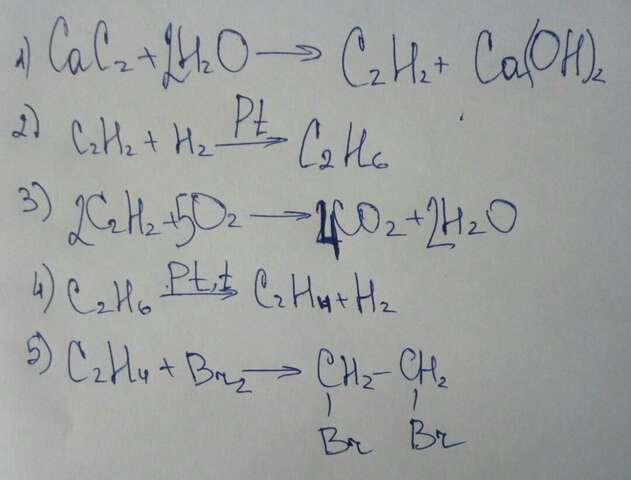 1) CaC₂ + 2H₂O → C₂H₂ + Ca(OH)₂
2) C₂H₂ + H₂ Pt→ C₂H₆
3) 2C₂H₂ + 5O₂ → 4CO₂ + 2H₂O
4) C₂H₆ Pt, t→ C₂H₄ + H₂
5) C₂H₄ + Br₂ → CH₂ – CH₂
Br Br